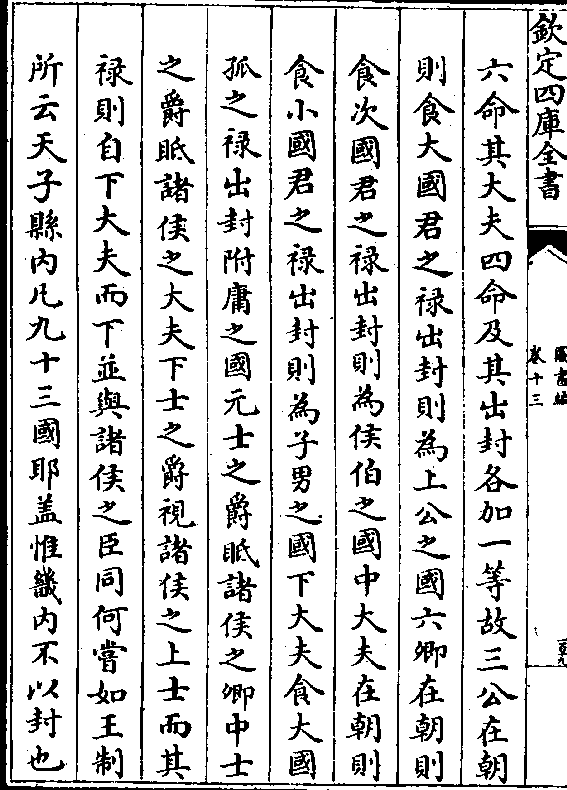 欽定四庫全書
圖書編
卷十三
六命其大夫四命及其出封各加一等故三公在朝
則食大國君之禄出封則為上公之國六卿在朝則
食次國君之禄出封則為侯伯之國中大夫在朝則
食小國君之禄出封則為子男之國下大夫食大國
孤之禄出封附庸之國元士之爵眂諸侯之卿中士
之爵眂諸侯之大夫下士之爵視諸侯之上士而其
禄則自下大夫而下並與諸侯之臣同何嘗如王制
所云天子縣内凡九十三國耶盖惟畿内不以封也